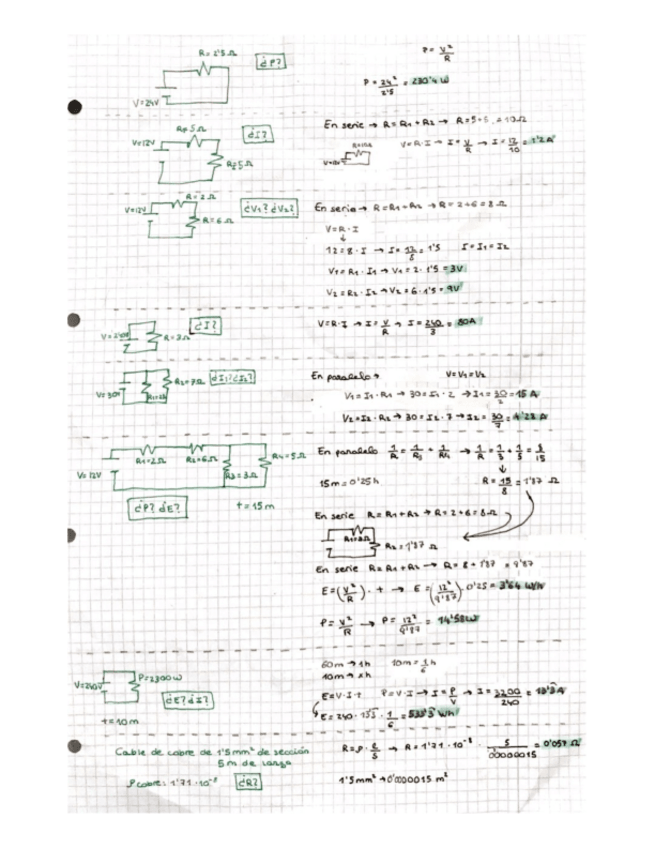 R = 2'5 Ω
¿P?
V = 24V
P = V²/R
P = 24²/2'5 = 230'4 W
R₁ = 5 Ω
¿I?
V = 12V
R₂ = 5 Ω
En serie → R = R₁ + R₂ → R = 5 + 5 = 10 Ω
R = 10 Ω
V = R · I → I = V/R → I = 12/10 = 1'2 A
R = 2 Ω
V = 12V
R = 6 Ω
¿V₁? ¿V₂?
En serie → R = R₁ + R₂ → R = 2 + 6 = 8 Ω
V = R · I
12 = 8 · I → I = 12/8 = 1'5 I = I₁ = I₂
V₁ = R₁ · I₁ → V₁ = 2 · 1'5 = 3V
V₂ = R₂ · I₂ → V₂ = 6 · 1'5 = 9V
¿I?
V = 240V
R = 3 Ω
V = R · I → I = V/R → I = 240/3 = 80A
V = 30V
R₁ = 2Ω
R₂ = 7Ω
¿I₁? ¿I₂?
En paralelo → V = V₁ = V₂
V₁ = I₁ · R₁ → 30 = I₁ · 2 → I₁ = 30/2 = 15 A
V₂ = I₂ · R₂ → 30 = I₂ · 7 → I₂ = 30/7 = 4'28 A
V = 12V
R₁ = 2Ω
R₂ = 6Ω
R₃ = 3Ω
R₄ = 5Ω
¿P? ¿E?
t = 15m
En paralelo 1/R = 1/R₃ + 1/R₄ → 1/R = 1/3 + 1/5 = 8/15
15m = 0'25h
R = 15/8 = 1'87 Ω
En serie R = R₁ + R₂ → R = 2 + 6 = 8 Ω
R₁ = 8Ω
R₂ = 1'87 Ω
En serie R = R₁ + R₂ → R = 8 + 1'87 = 9'87
E = (V²/R) · t → E = (12²/9'87) · 0'25 = 3'64 W/h
P = V²/R → P = 12²/9'87 = 14'58W
V = 240V
¿E? ¿I?
t = 10m
60m → 1h 10m = 1/6 h
10m → xh
E = V · I · t P = V · I → I = P/V → I = 3200/240 = 13'3 A
E = 240 · 13'3 · 1/6 = 533'3 Wh
Cable de cobre de 1'5 mm² de sección
5m de largo
ρ cobre: 1'71 · 10⁻⁸
¿R?
R = ρ · l/s → R = 1'71 · 10⁻⁸ · 5/0'0000015 = 0'057 Ω
1'5 mm² → 0'0000015 m²